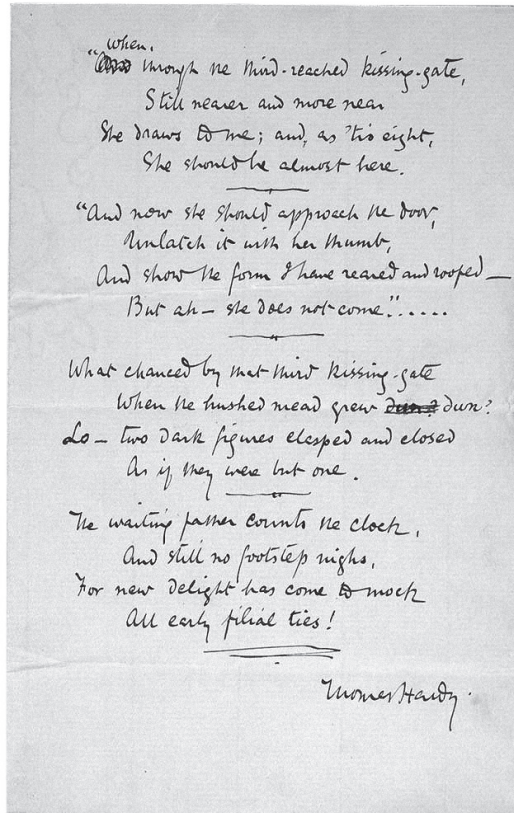 when,
"And through the third-reached kissing-gate,
Still nearer and more near
She draws to me; and, as 'tis eight,
She should be almost here.
"And now she should approach the door,
Unlatch it with her thumb,
And show the form I have reared and roofed—
But ah— she does not come.".....
What chanced by that third kissing-gate
When the hushed mead grew dun? dun?
Lo— two dark figures clasped and closed
As if they were but one.
The waiting father counts the clock,
And still no footstep nighs,
For new delight has come to mock
All early filial ties!
Thomas Hardy.